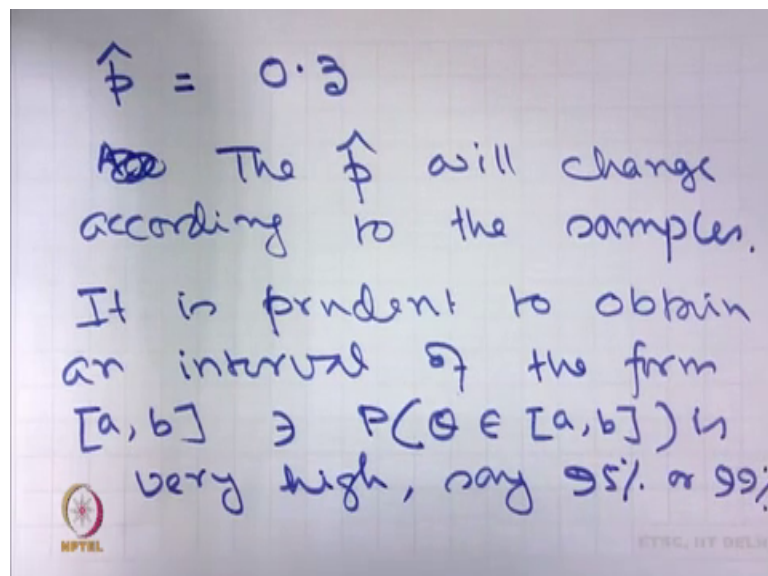 p̂ = 0.3
The p̂ will change
according to the samples.
It is prudent to obtain
an interval of the form
[a, b] ∋ P(θ ∈ [a, b]) is
very high, say 95% or 99%
NPTEL
ETSC, IIT DELHI